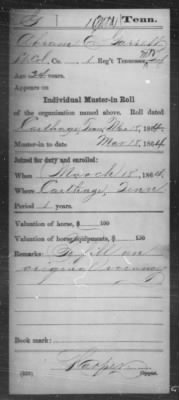 G 1 Tenn.
Abram C. Garrett
Co. 1 Reg't Tennessee
Age years.
Appears on
Individual Muster-in Roll
of the organization named above. Roll dated
Carthage, Tenn, Mar 18, 1864.
Muster-in to date Mar 18, 1864
Joined for duty and enrolled:
When March 18, 1864
Where Carthage, Tenn
Period years.
Valuation of horse, $ 100
Valuation of horse equipments, $ 100
Remarks:
original
Book mark:
Harper
Copyist.